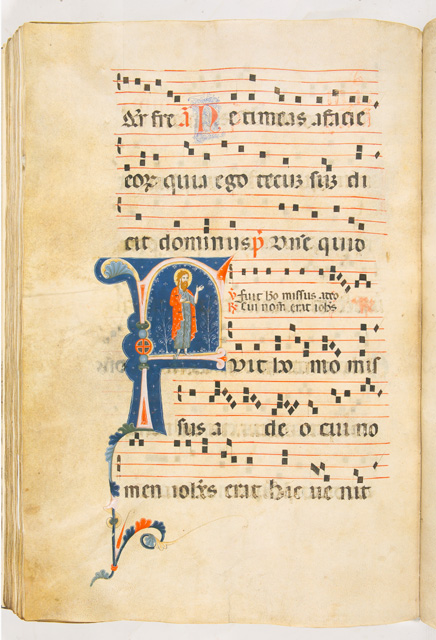 fre a Ne timeas a facie
eoꝝ quia ego tecuz suz di
cit dominus p̄ Vn̄c quid
℣ fuit ho missus a deo
℟ Cui nom̄ erat ioh̄s
Fuit ho mo mis
sus a de o cui no
men ioh̄es erat hic ue nit